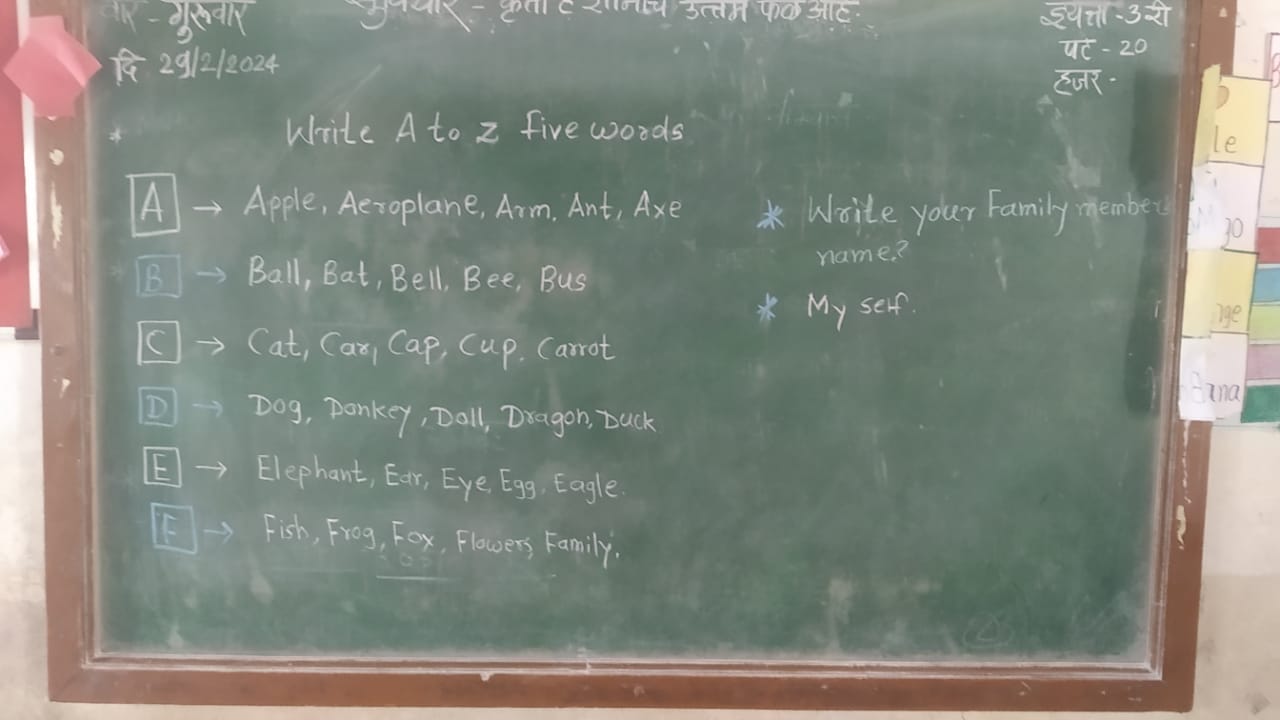 वार - गुरूवार
दि 29/2/2024
सुविचार - कृती हे ज्ञानाचे उत्तम फळ आहे.
इयत्ता - 3 री
पट - 20
हजर -
* Write A to Z five words
A → Apple, Aeroplane, Arm, Ant, Axe
B → Ball, Bat, Bell, Bee, Bus
C → Cat, Car, Cap, Cup, Carrot
D → Dog, Donkey, Doll, Dragon, Duck
E → Elephant, Ear, Eye, Egg, Eagle.
F → Fish, Frog, Fox, Flowers, Family.
* Write your Family members
name?
* My self.